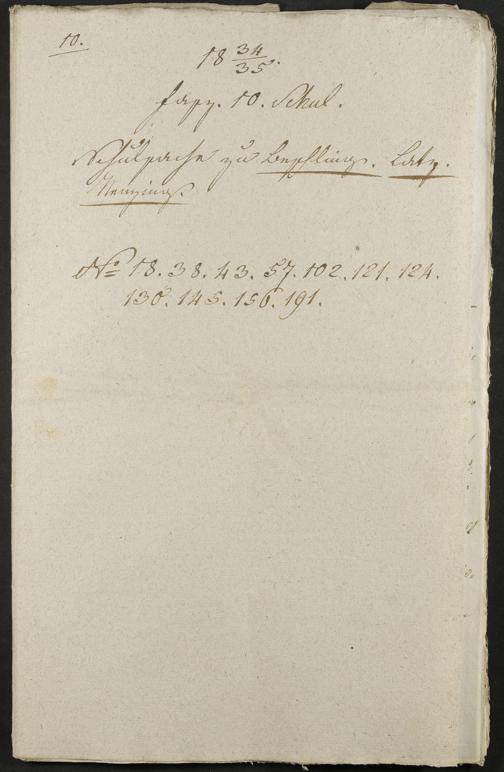 10.
18 34/35.
Fasz. 10. Schul.
Schulsache zu Beschling. Latz.
Nenzing.
No 18. 38. 43. 57. 102. 121. 124.
130. 145. 156. 191.